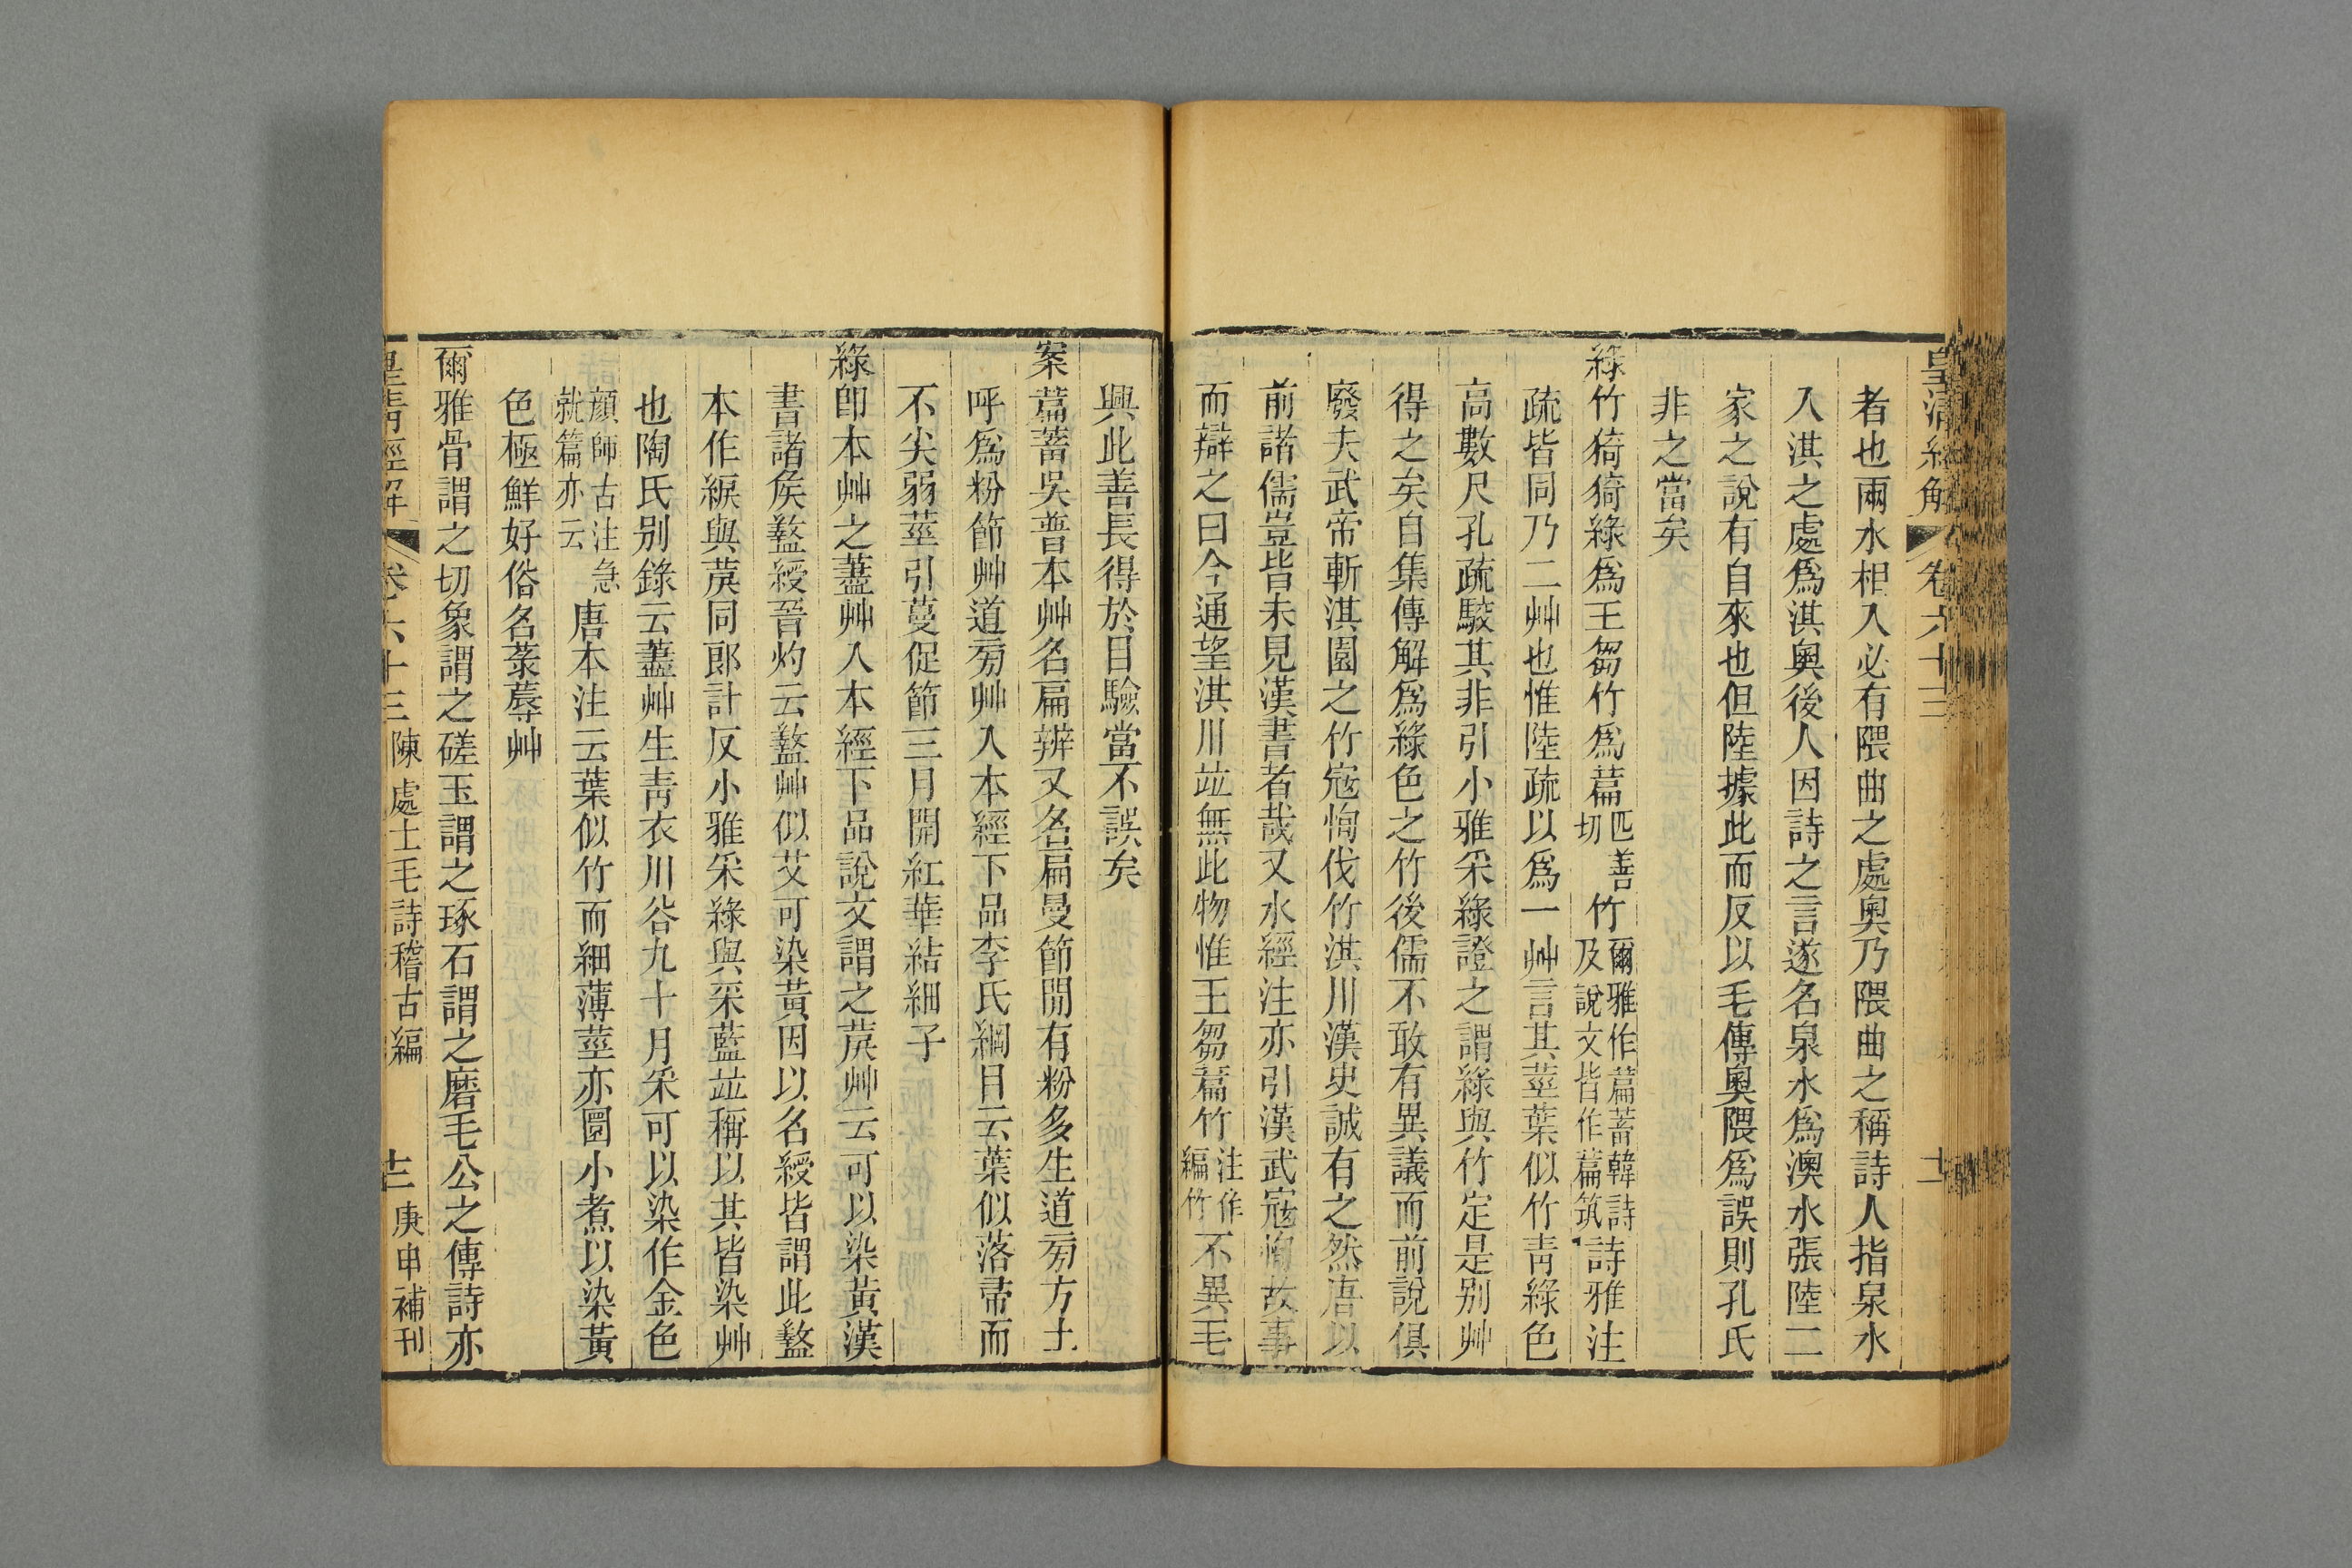 皇清經解 卷六十三 十一
者也兩水相入必有隈曲之處奧乃隈曲之稱詩人指泉水
入淇之處爲淇奧後人因詩之言遂名泉水爲澳水張陸二
家之說有自來也但陸據此而反以毛傳奧隈爲誤則孔氏
非之當矣
綠竹猗猗綠爲王芻竹爲萹匹善切竹爾雅作萹蓄韓詩及說文皆作萹筑詩雅注
疏皆同乃二艸也惟陸疏以爲一艸言其莖葉似竹靑綠色
高數尺孔疏駮其非引小雅采綠證之謂綠與竹定是别艸
得之矣自集傳解爲綠色之竹後儒不敢有異議而前說俱
廢夫武帝斬淇園之竹寇恂伐竹淇川漢史誠有之然唐以
前諸儒豈皆未見漢書者哉又水經注亦引漢武寇恂故事
而辯之曰今通望淇川竝無此物惟王芻萹竹注作編竹不異毛
興此善長得於目驗當不誤矣
案萹蓄吳普本艸名扁辨又名扁曼節閒有粉多生道旁方士
呼爲粉節艸道旁艸入本經下品李氏綱目云葉似落帚而
不尖弱莖引蔓促節三月開紅華結細子
綠卽本艸之藎艸入本經下品說文謂之莀艸云可以染黃漢
書諸侯盭綬晉灼云盭艸似艾可染黃因以名綬皆謂此盭
本作綟與莀同郎計反小雅采綠與采藍竝稱以其皆染艸
也陶氏别錄云藎艸生靑衣川谷九十月采可以染作金色
顔師古注急就篇亦云唐本注云葉似竹而細薄莖亦圓小煮以染黃
色極鮮好俗名菉蓐艸
爾雅骨謂之切象謂之磋玉謂之琢石謂之磨毛公之傳詩亦
皇淸經解 卷六十三 陳處士毛詩稽古編 十二 庚申補刊